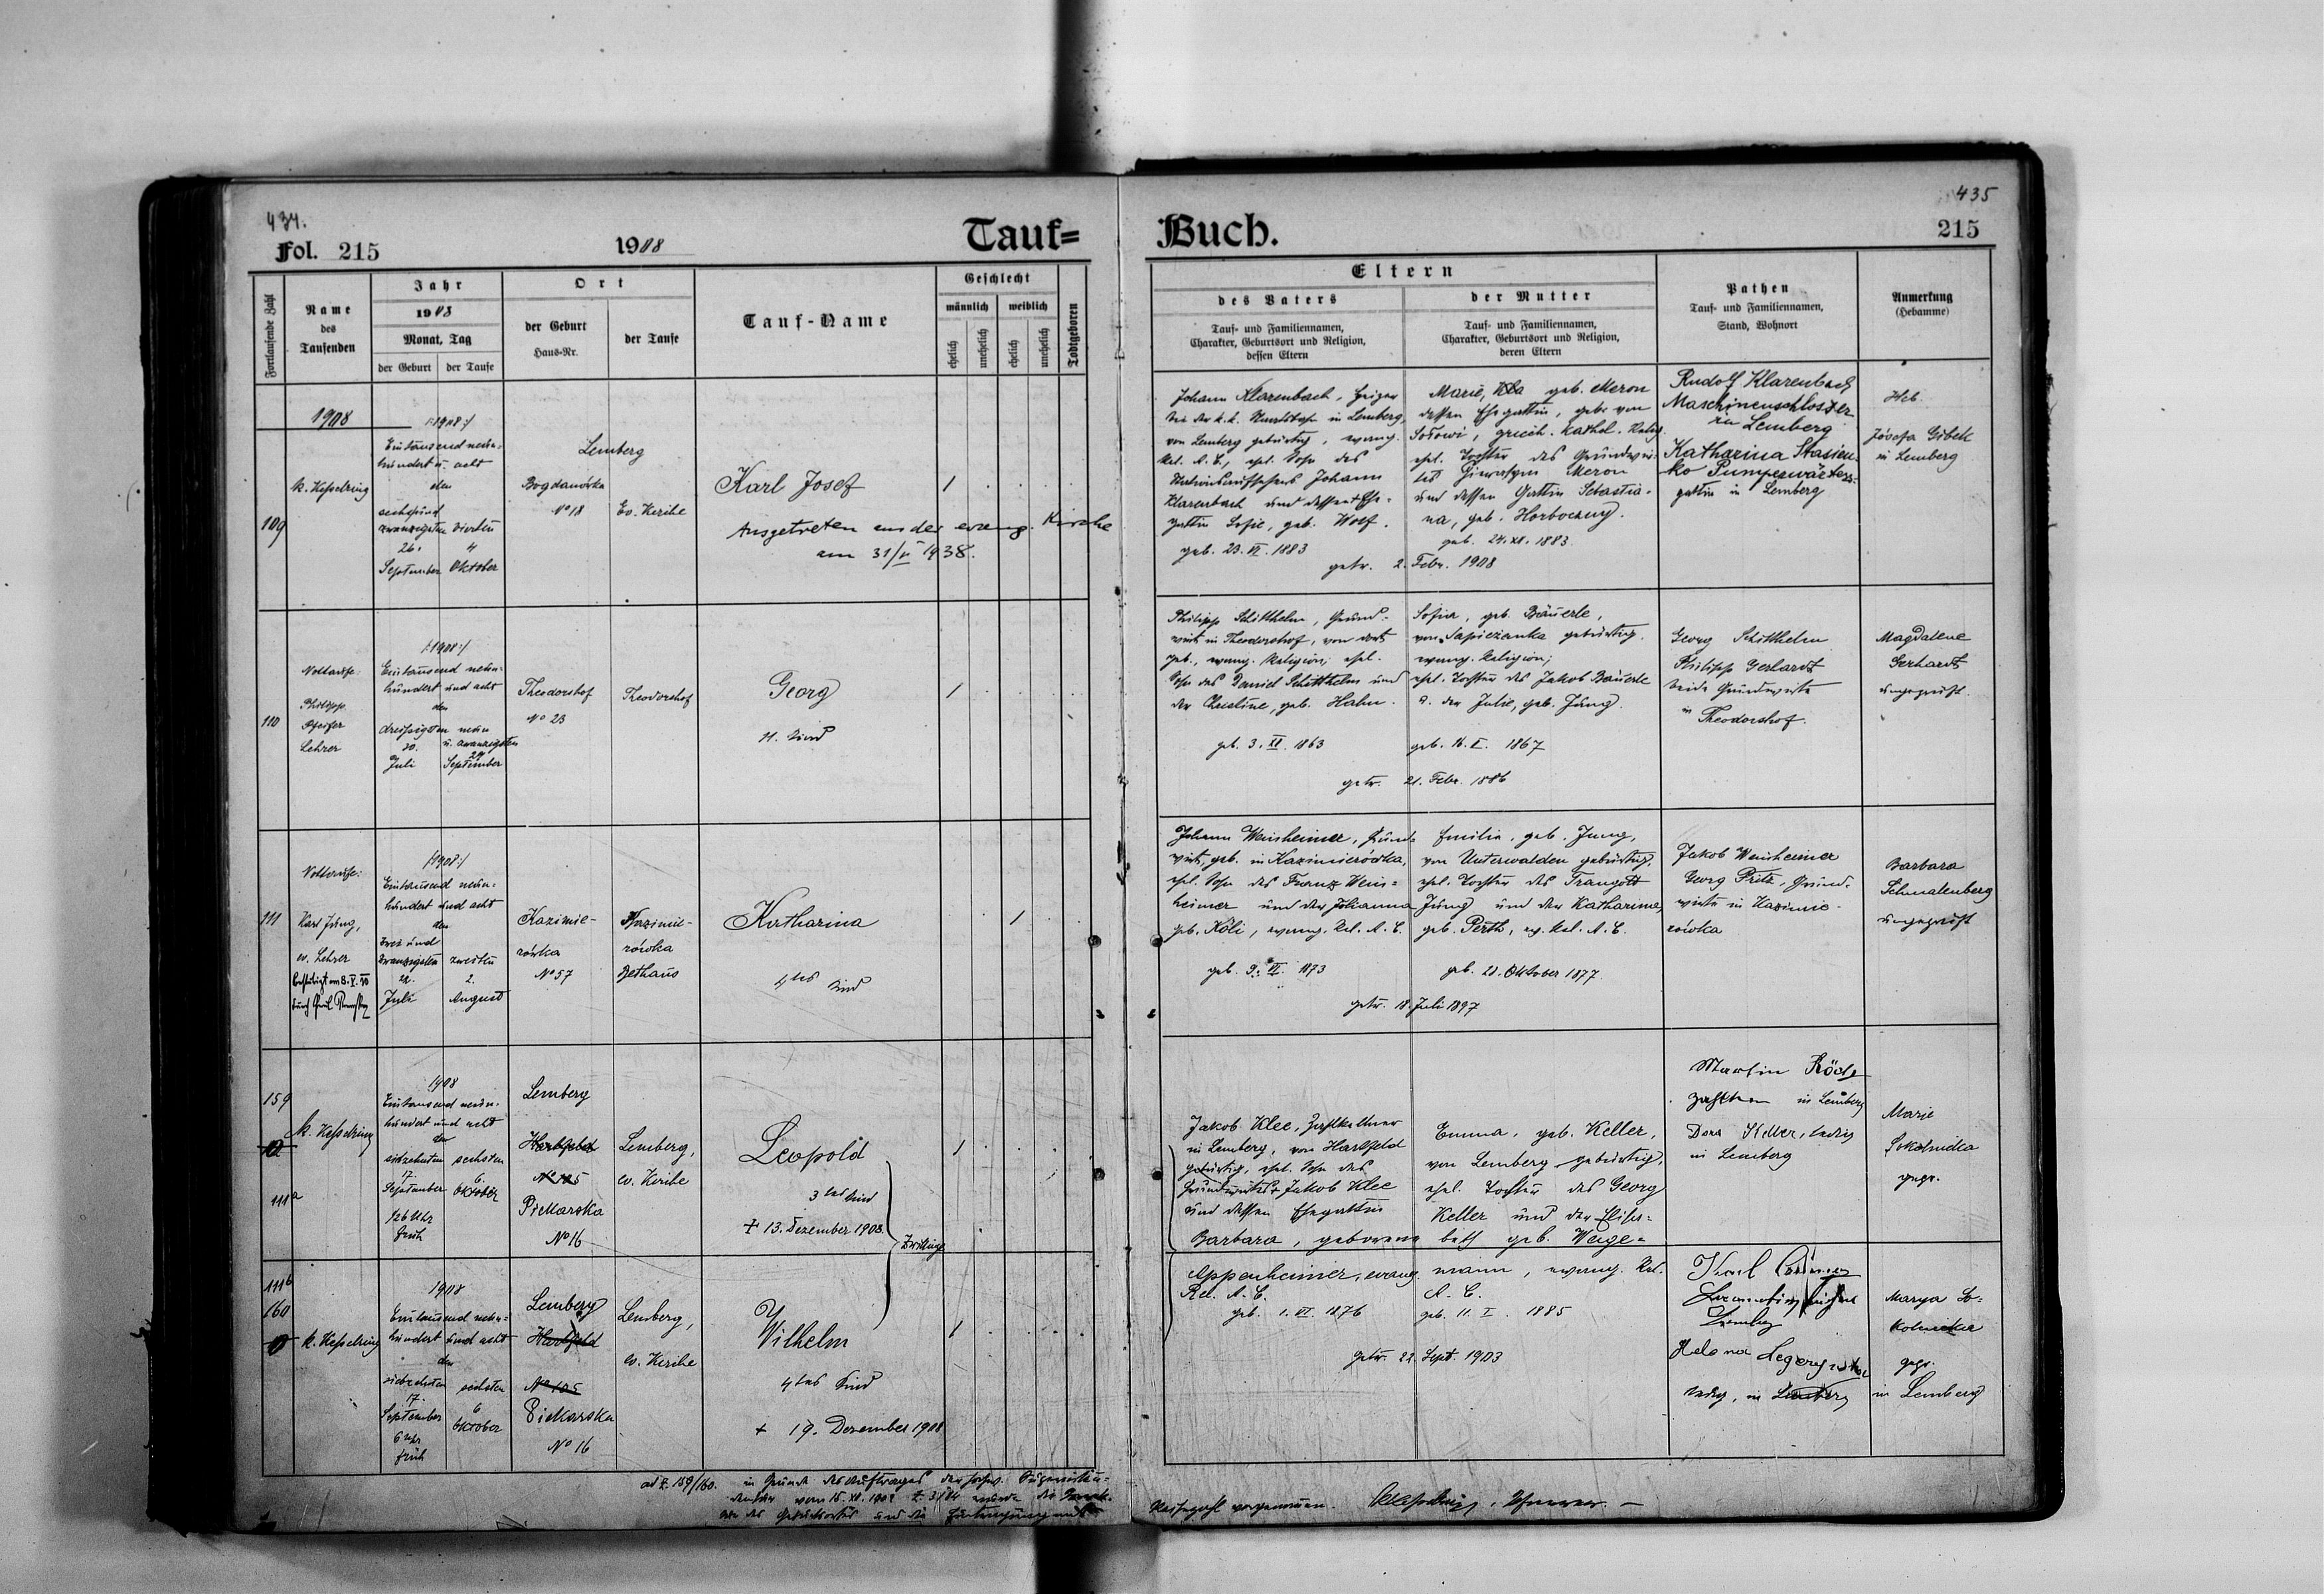 434.
Fol. 215
1908
Tauf=
Fortlaufende Zahl
Name
des
Taufenden
Jahr
1908
Monat, Tag
der Geburt
der Taufe
Ort
der Geburt
Haus-Nr.
der Taufe
Tauf-Name
Geschlecht
männlich
weiblich
ehelich
unehelich
ehelich
unehelich
Todtgeboren
1908
109
K. Kesselring
/:1908:/
Eintausend neun-
hundert u. acht
den
sechsund
zwanzigsten vierten
26. 4
September Oktober
Lemberg
Bogdanówka
No 18
Ev. Kirche
Karl Josef
1
Ausgetreten aus der evang. Kirche
am 31/V 1938.
110
Nottaufe:
Philipp
Pfeifer
Lehrer
/:1908:/
Eintausend neun-
hundert und acht
den
dreissigsten neun
30. u. zwanzigsten
29
Juli September
Theodorshof
No 23
Theodorshof
Georg
11. Kind
1
111
Nottaufe:
Karl Jung,
ev. Lehrer
/:1908:/
Eintausend neun-
hundert und acht
den
zwei und
zwanzigsten zweiten
22. 2.
Juli August
Kazimie-
rówka
No 57
Kazimie-
rówka
Bethaus
Katharina
4tes Kind
1
159
111a
K. Kesselring
1908
Eintausend neun-
hundert und acht
den
siebzehnten sechsten
17. 6.
September Oktober
1/2 6 Uhr
früh
Lemberg
Hartfeld
No 105
Piekarska
No 16
Lemberg,
ev. Kirche
Leopold
3tes Kind
+ 13. Dezember 1908.
Zwillinge
1
111b
160
K. Kesselring
1908
Eintausend neun-
hundert und acht
den
siebzehnten sechsten
17. 6
September Oktober
6 Uhr
früh
Lemberg
Hartfeld
No 105
Piekarska
No 16
Lemberg,
ev. Kirche
Wilhelm
4tes Kind
+ 19. Dezember 1908
1
ad Z. 159/160. in Grunde des Auftrages der
435
Buch.
215
Eltern
des Vaters
Tauf- und Familiennamen,
Charakter, Geburtsort und Religion,
dessen Eltern
der Mutter
Tauf- und Familiennamen,
Charakter, Geburtsort und Religion,
deren Eltern
Pathen
Tauf- und Familiennamen,
Stand, Wohnort
Anmerkung
(Hebamme)
Johann Klarenbach, Heizer
bei der k.k. Staatsbahn in Lemberg,
von Lemberg gebürtig, evang.
Rel. A. C., ehel. Sohn des
Johann
Klarenbach und dessen + Ehe-
gattin Sofie, geb. Wolf.
geb. 23. VI. 1883
Marie, geb. Meron
dessen Ehegattin, geb. von
Sołowi, griech. kathol. Relig.
ehel. Tochter des Grundwir-
tes Meron
und dessen Gattin Sebastia-
na, geb. Horboczuy.
geb. 24. XI. 1883
getr. 2. Febr. 1908
Rudolf Klarenbach
Maschinenschlosser
zu Lemberg
Katharina Stasien-
ko Pumpenwärters-
gattin in Lemberg
Heb.
Józefa Gibek
in Lemberg
Philipp Schitthelm, Grund-
wirt in Theodorshof, von dort
geb., evang. Religion, ehel.
Sohn des Daniel Schitthelm und
der Christine, geb. Hahn.
geb. 3. XI. 1863
Sofia, geb. Bäuerle,
von Sapieżanka gebürtig.
evang. Religion;
ehel. Tochter des Jakob Bäuerle
u. der Julie, geb. Jung.
geb. 16. I. 1867
getr. 21. Febr. 1886
Georg Schitthelm
Philipp Gerhardt
beide Grundwirte
in Theodorshof.
Magdalene
Gerhardt
ungeprüft
Johann Weinheimer, Grund-
wirt, geb. in Kazimierówka,
ehel. Sohn des Franz Wein=
heimer und der Johanna
geb. Köli, evang. Rel. A. C.
geb. 9. VI. 1873
Emilie, geb. Jung,
von Unterwalden gebürtig,
ehel. Tochter des Traugott
Jung und der Katharina,
geb. Perth, ev. Rel. A. C.
geb. 21. Oktober 1877.
getr. 18. Juli 1897
Jakob Weinheimer
Georg Pritz, Grund-
wirte in Kazimie-
rówka
Barbara
Schmalenberg
ungeprüft
Jakob Klee, Zahlkellner
in Lemberg, von Hartfeld
gebürtig, ehel. Sohn des
Grundwirtes Jakob Klee
und dessen Ehegattin
Barbara, geborene
Appenheimer, evang.
Rel. A. C.
geb. 1. VI. 1876
Emma, geb. Keller,
von Lemberg gebürtig,
ehel. Tochter des Georg
Keller und der Elisa=
beth geb. Wage=
mann, evang. Rel.
A. C.
geb. 11. I. 1885
getr. 22. Sept. 1903
Martin
in Lemberg
Dora Keller, ledig
in Lemberg
Marie
Sokolnicka
gepr.
Karl
Lemberg
ledig, in Lemberg
Marya So-
kolnicka
gepr.
in Lemberg
vorgenommen.